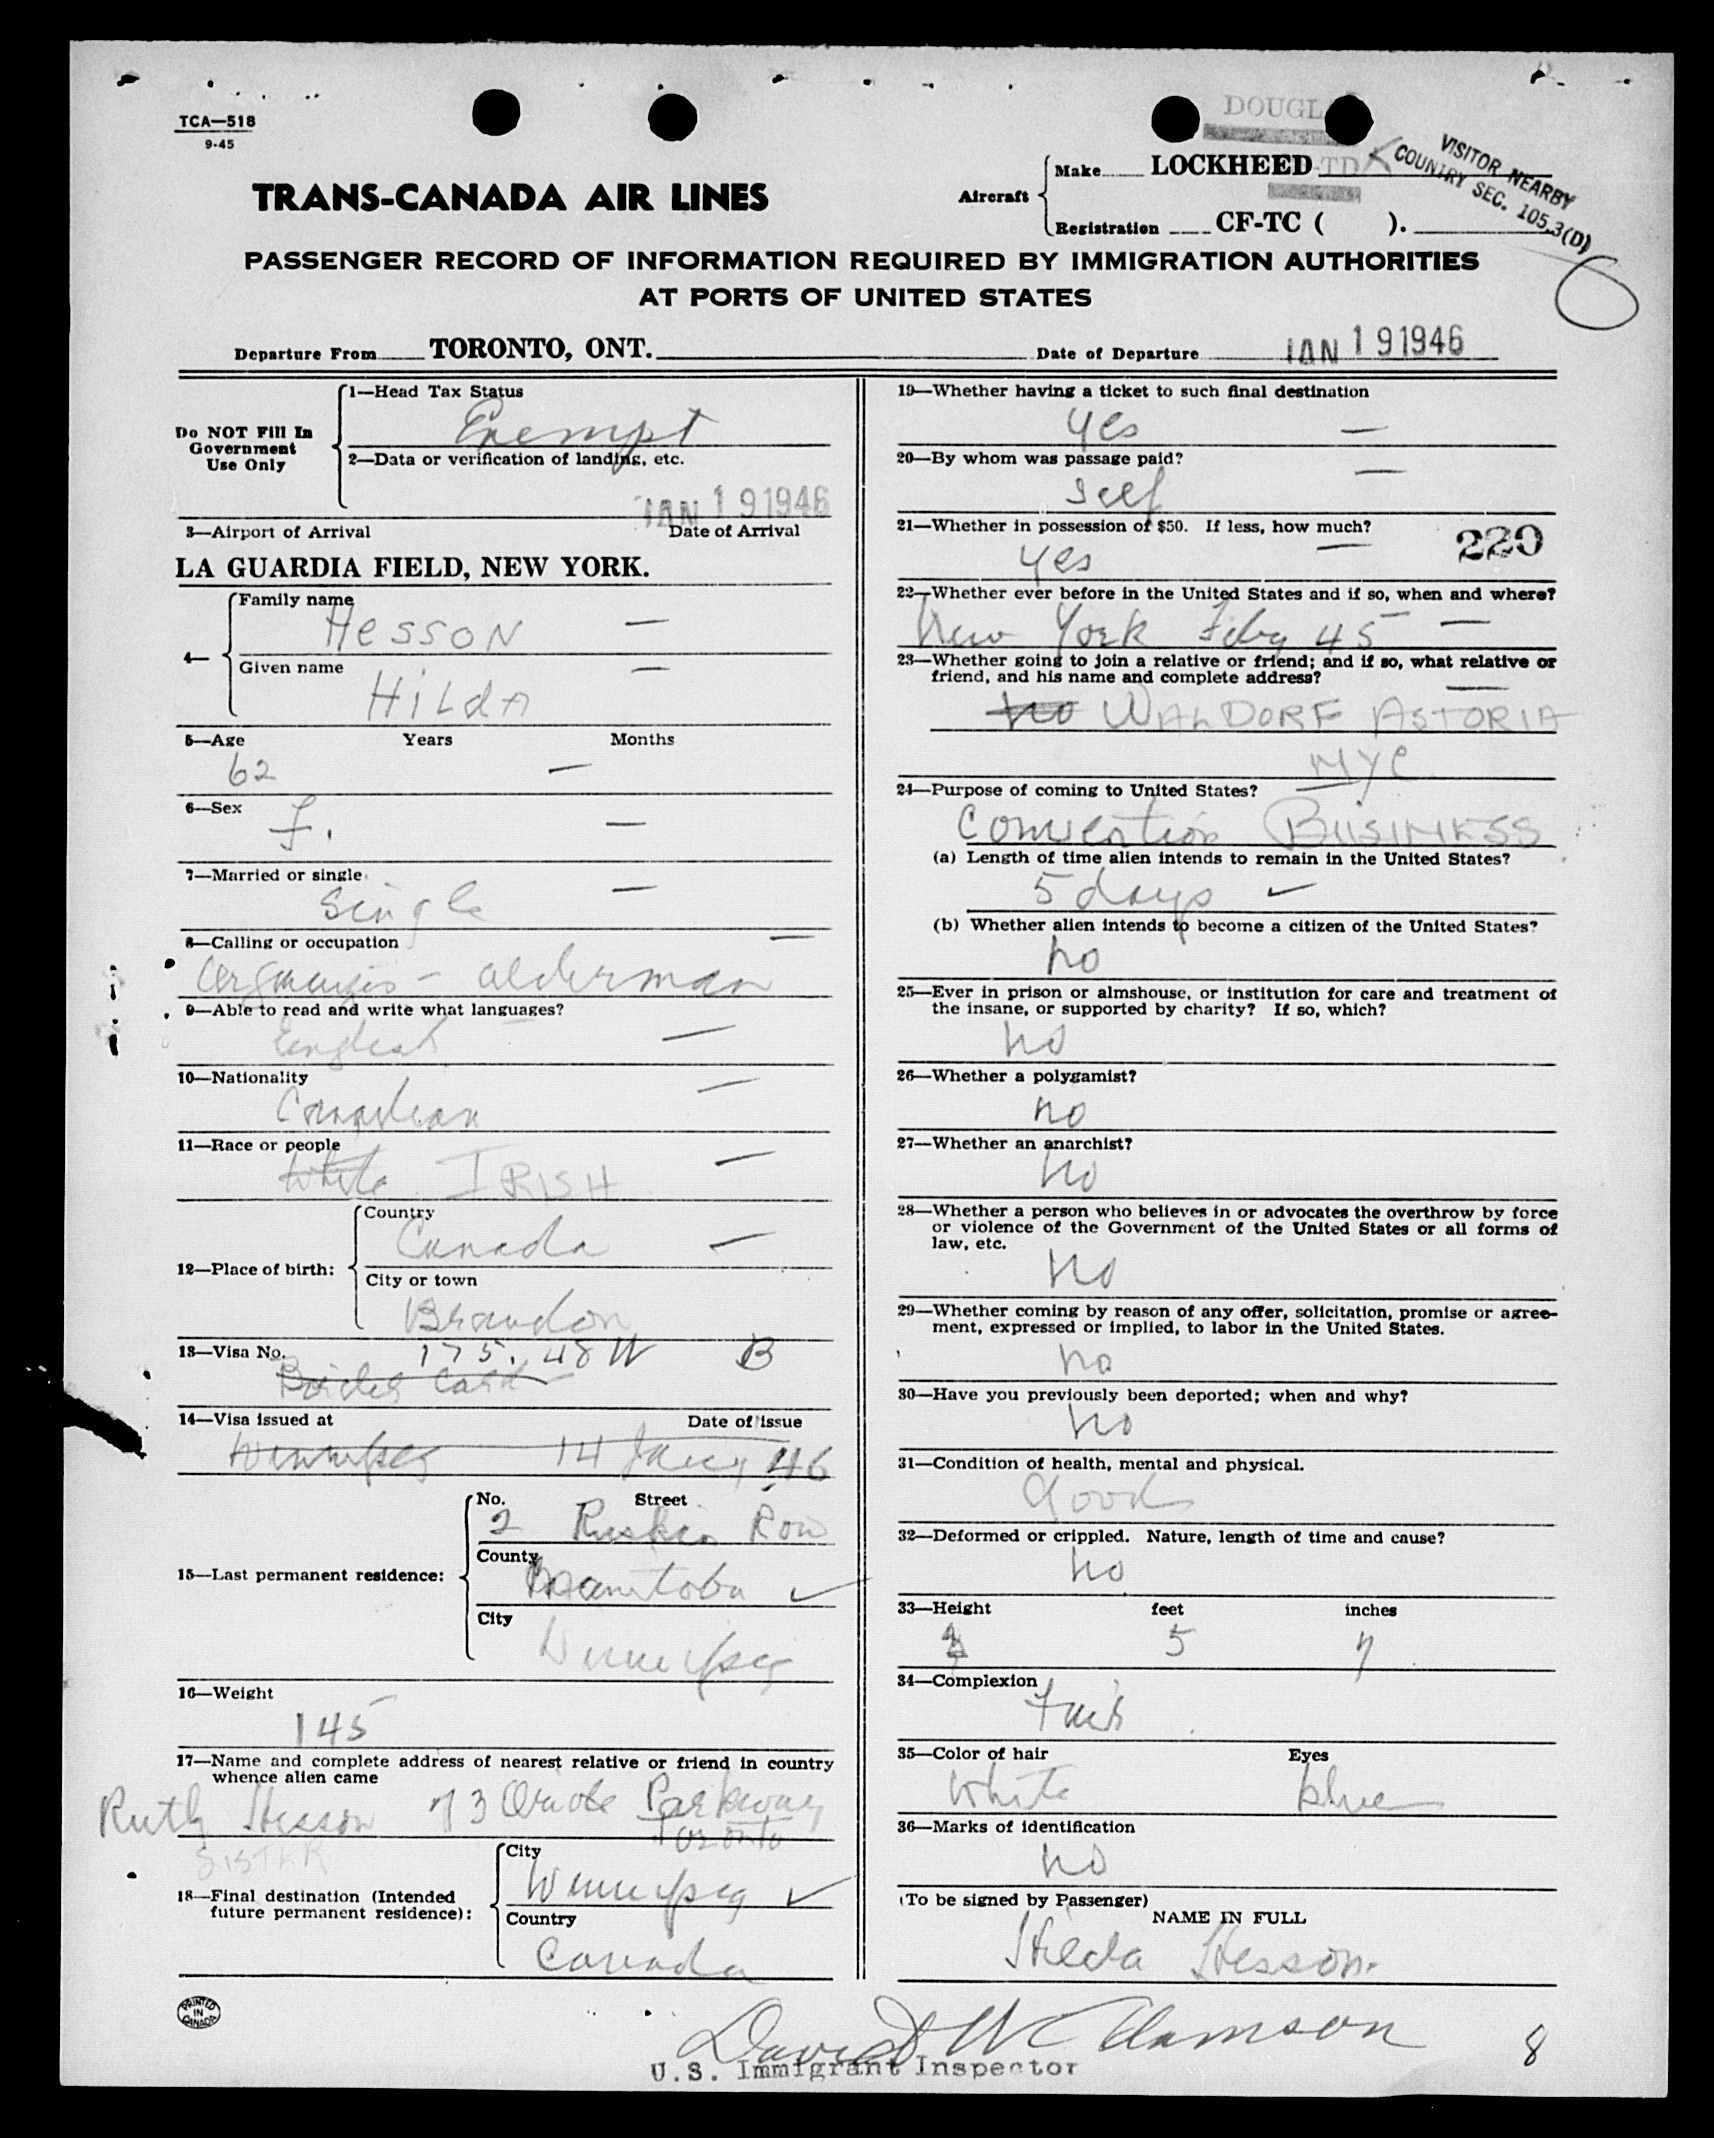 TCA—518
9-45
DOUGL
TRANS-CANADA AIR LINES
Aircraft
Make LOCKHEED
Registration CF-TC ( ).
VISITOR NEARBY
COUNTRY SEC. 105.3(D)
PASSENGER RECORD OF INFORMATION REQUIRED BY IMMIGRATION AUTHORITIES
AT PORTS OF UNITED STATES
Departure From TORONTO, ONT.
Date of Departure JAN 19 1946
Do NOT Fill In
Government
Use Only
1—Head Tax Status
Exempt
2—Data or verification of landing, etc.
JAN 19 1946
3—Airport of Arrival Date of Arrival
LA GUARDIA FIELD, NEW YORK.
4—
Family name
Hesson —
Given name —
Hilda
5—Age Years Months
62 —
6—Sex
F. —
7—Married or single
Single —
8—Calling or occupation —
alderman
9—Able to read and write what languages?
English —
10—Nationality —
Canadian
11—Race or people —
White IRISH
12—Place of birth:
Country
Canada —
City or town
Brandon
13—Visa No. 175. 48 W B
Border Card
14—Visa issued at Date of issue
Winnipeg 14 Jany 46
15—Last permanent residence:
No. Street
2 Ruskin Row
County
Manitoba ✓
City
Winnipeg
16—Weight
145
17—Name and complete address of nearest relative or friend in country
whence alien came
Ruth Hesson 73 Oriole Parkway
Toronto
SISTER
18—Final destination (Intended
future permanent residence):
City
Winnipeg ✓
Country
Canada
19—Whether having a ticket to such final destination
yes —
20—By whom was passage paid? —
Self
21—Whether in possession of $50. If less, how much?
yes — 220
22—Whether ever before in the United States and if so, when and where?
New York Feby 45 —
23—Whether going to join a relative or friend; and if so, what relative or
friend, and his name and complete address? —
no WALDORF ASTORIA
NYC
24—Purpose of coming to United States?
Convention BUSINESS
(a) Length of time alien intends to remain in the United States?
5 days ✓
(b) Whether alien intends to become a citizen of the United States?
no
25—Ever in prison or almshouse, or institution for care and treatment of
the insane, or supported by charity? If so, which?
no
26—Whether a polygamist?
no
27—Whether an anarchist?
no
28—Whether a person who believes in or advocates the overthrow by force
or violence of the Government of the United States or all forms of
law, etc.
no
29—Whether coming by reason of any offer, solicitation, promise or agree-
ment, expressed or implied, to labor in the United States.
no
30—Have you previously been deported; when and why?
no
31—Condition of health, mental and physical.
Good
32—Deformed or crippled. Nature, length of time and cause?
no
33—Height feet inches
5 7
34—Complexion
Fair
35—Color of hair Eyes
White blue
36—Marks of identification
no
(To be signed by Passenger)
NAME IN FULL
Hilda Hesson.
PRINTED
IN
CANADA
U.S. Immigrant Inspector
8